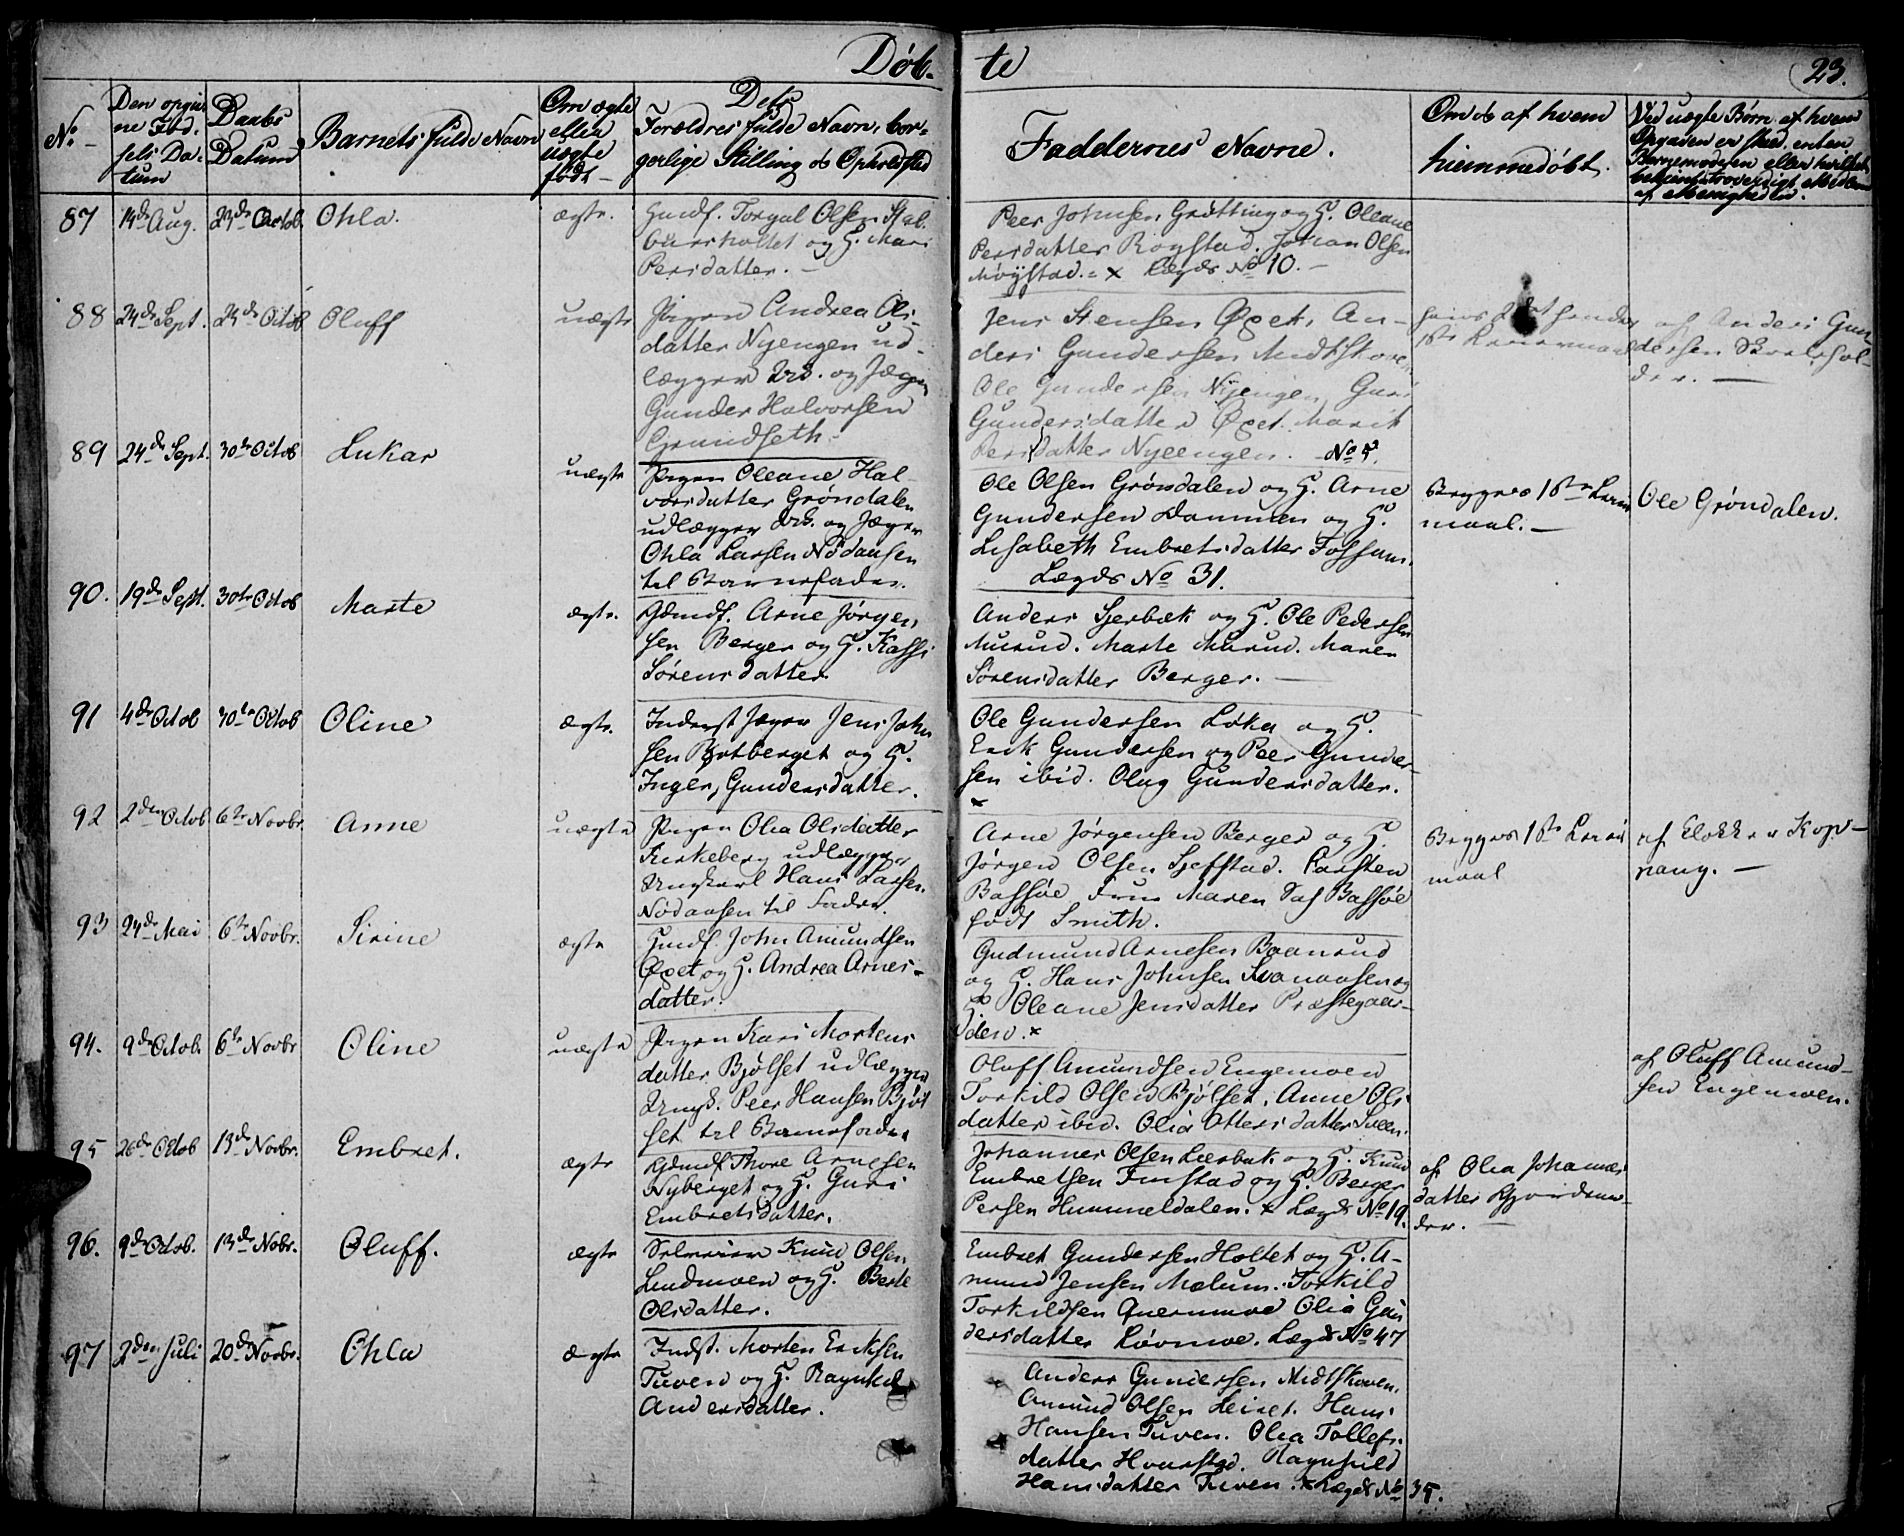 Døb-
te
23.
No
Den opgiv-
ne Fød-
sels Da-
tum
Daabs
Datum
Barnets fulde Navn
Om ægte
eller
uægte
født
Dets
Forældres fulde Navn, bor-
gerlige Stilling og Opholdsted
Faddernes Navne.
Om og af hvem
hiemmedøbt.
Ved uægte Børn af hvem
Opgaven er skeed, enten
Barnemoderen eller
af Menigheden.
87 14de Aug. 23de Octob. Ohla. ægte.
Gmdf. Torgal Olsen Stal-
buesholtet og H. Mari
Persdatter.
Peer Johnsen Grøtting og H. Oleane
Persdatter Rogstad. Johan Olsen
Møystad. x Lægds No 10.
88 24de Sept. 23de Octob Oluff uægte
Pigen Andrea Ols-
datter Nyengen ud-
lægger og Jæger
Gunder Halvorsen
Grundseth.
Jens Stensen Øxet, An-
ders Gundersen Midtskoven
Ole Gundersen Nyengen, Guri
Gundersdatter Øxet. Marit
Persdatter Nyeengen. No 5.
af Anders Gun-
dersen
89 24de Sept. 30te Octob Lukas uægte
Pigen Oleane Hal-
vorsdatter Grøndalen
udlægger og Jæger
Ohla Larsen Nødaasen
til Barnefader.
Ole Olsen Grøndalen og H. Arne
Gundersen Dammen og H.
Lisabeth Embretsdatter Fossum.
Lægds No 31.
Begges 1ste Leier-
maal.
Ole Grøndalen.
90. 19de Sept. 30te Octob Marte ægte.
Gmdf. Arne Jørgen-
sen Berger og H. Kassi
Sørensdatter
Anders Sjerbæk og H. Ole Pedersen
Murud. Marte Murud. Maren
Sørensdatter Berger.
91 4de Octob 30te Octob Oline ægte.
Inderst Jæger Jens John-
sen Bytberget og H.
Inger Gundersdatter.
Ole Gundersen Løka og H.
Erik Gundersen og Peer Gunder-
sen ibid. Olug Gundersdatter.
x
92 2den Octob 6te Novbr. Anne uægte
Pigen Olia Olsdatter
Kirkeberg udlægger
Ungkarl Hans Larsen
Nødaasen til Fader.
Arne Jørgensen Berger og H.
Jørgen Olsen Sjefstad. Carsten
Bassøe Frue Maren Bassøe
født Smith.
Begges 1ste Leier-
maal
af Klokker Kop-
pang.
93 24de Mai 6te Novbr. Sirine ægte
Gmdf. John Amundsen
Øxet og H. Andrea Arnes-
datter.
Gudmund Arnesen Baanrud
og H. Hans Johnsen Svanaasen og
H. Oleane Jensdatter Præstegaar-
den. x
94. 9de Octob. 6te Novbr Oline uægte
Pigen Kari Mortens-
datter Bjølset udlægger
Ungk. Peer Hansen Bjøl-
set til Barnefader
Oluff Amundsen Engemoen
Torkild Olsen Bjølset, Anne Ols-
datter ibid. Olia Ottersdatter Sveen.
af Oluff Amund-
sen Engemoen.
95 26de Octob 13de Novbr. Embret. ægte
Gmdf. Thore Arnesen
Nyberget og H. Guri
Embretsdatter.
Johannes Olsen Lærbæk og H. Knud
Embretsen Finstad og H. Berger
Persen Hummeldalen. x Lægds No 19.
af Olia Johannes-
datter
96. 9de Octob. 13de Nobr. Oluff. ægte
Selveier Knud Olsen
Lindmoen og H. Berte
Olsdatter.
Embret Gundersen Holtet og H. A-
mund Jensen Mælum. Torkild
Torkildsen Quernmoe Olia Gun-
dersdatter Løvmoe. Lægds No 47
97 2den Juli 20de Novbr. Ohla ægte
Indst. Morten Eriksen
Tuven og H. Ragnhild
Andersdatter.
Anders Gundersen Midtskoven.
Amund Olsen Leiret. Hans
Hansen Tuven. Olia Tollefs-
datter Hvarstad. Ragnhild
Hansdatter Tuven. x Lægds No 35.